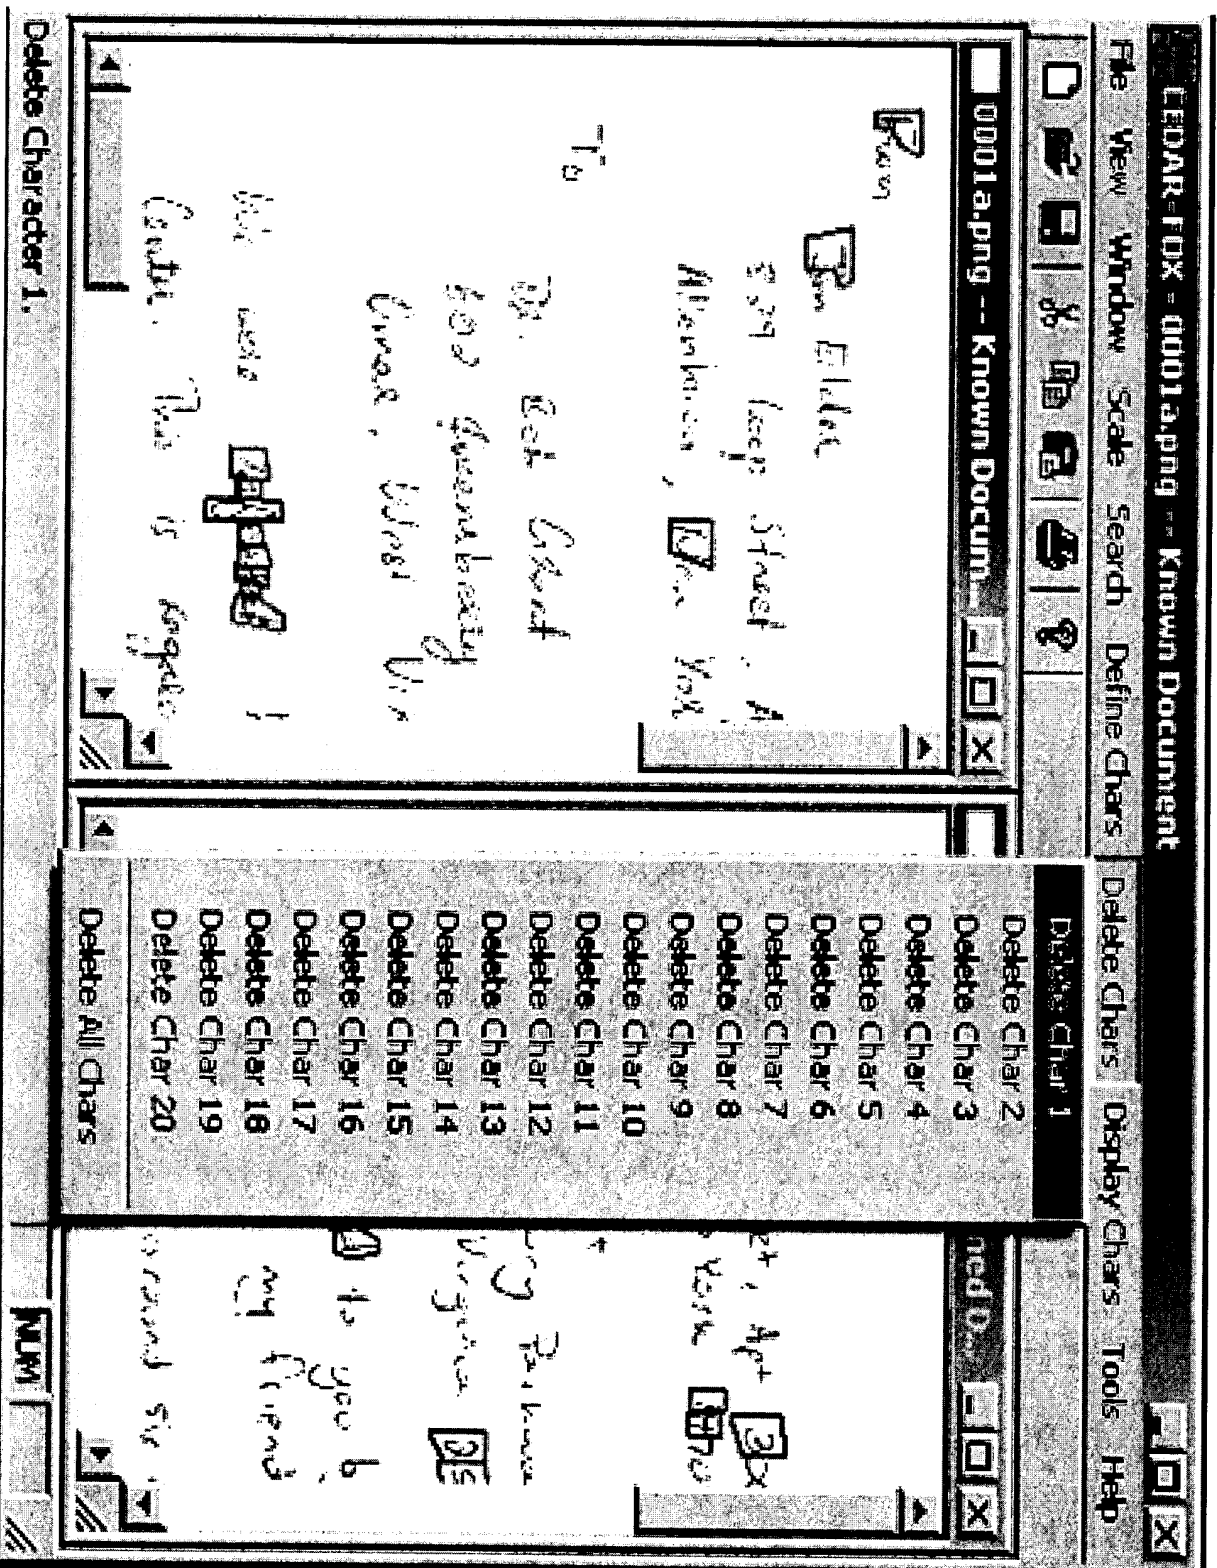 CEDAR-FOX - 0001a.png -- Known Document
File View Window Scale Search Define Chars Delete Chars Display Chars Tools Help
0001a.png -- Known Docum...
From
Jim Elder
829 Loop Street, A
Allentown, New York
To
Dr. Bob Grant
602 Queensberry
Omar, West Vir
We were
Center. This is
Delete Char 1
Delete Char 2
Delete Char 3
Delete Char 4
Delete Char 5
Delete Char 6
Delete Char 7
Delete Char 8
Delete Char 9
Delete Char 10
Delete Char 11
Delete Char 12
Delete Char 13
Delete Char 14
Delete Char 15
Delete Char 16
Delete Char 17
Delete Char 18
Delete Char 19
Delete Char 20
Delete All Chars
ned D...
et, Apt 3
York 1470
Parkwa
Virginia 25
to you b
my friend
around six
Delete Character 1.
NUM